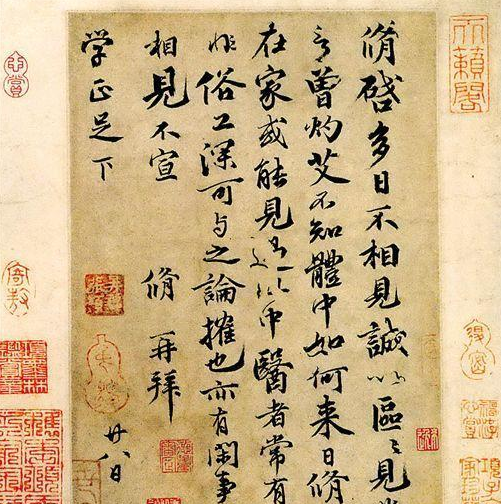 脩啓多日不相見誠以區〻見
言曾灼艾不知體中如何来日脩
在家或能見過此中醫者常有
非俗工深可与之論搉也亦有閑事
相見不宣 脩再拜
廿八日
学正足下
天籟閣
心賞